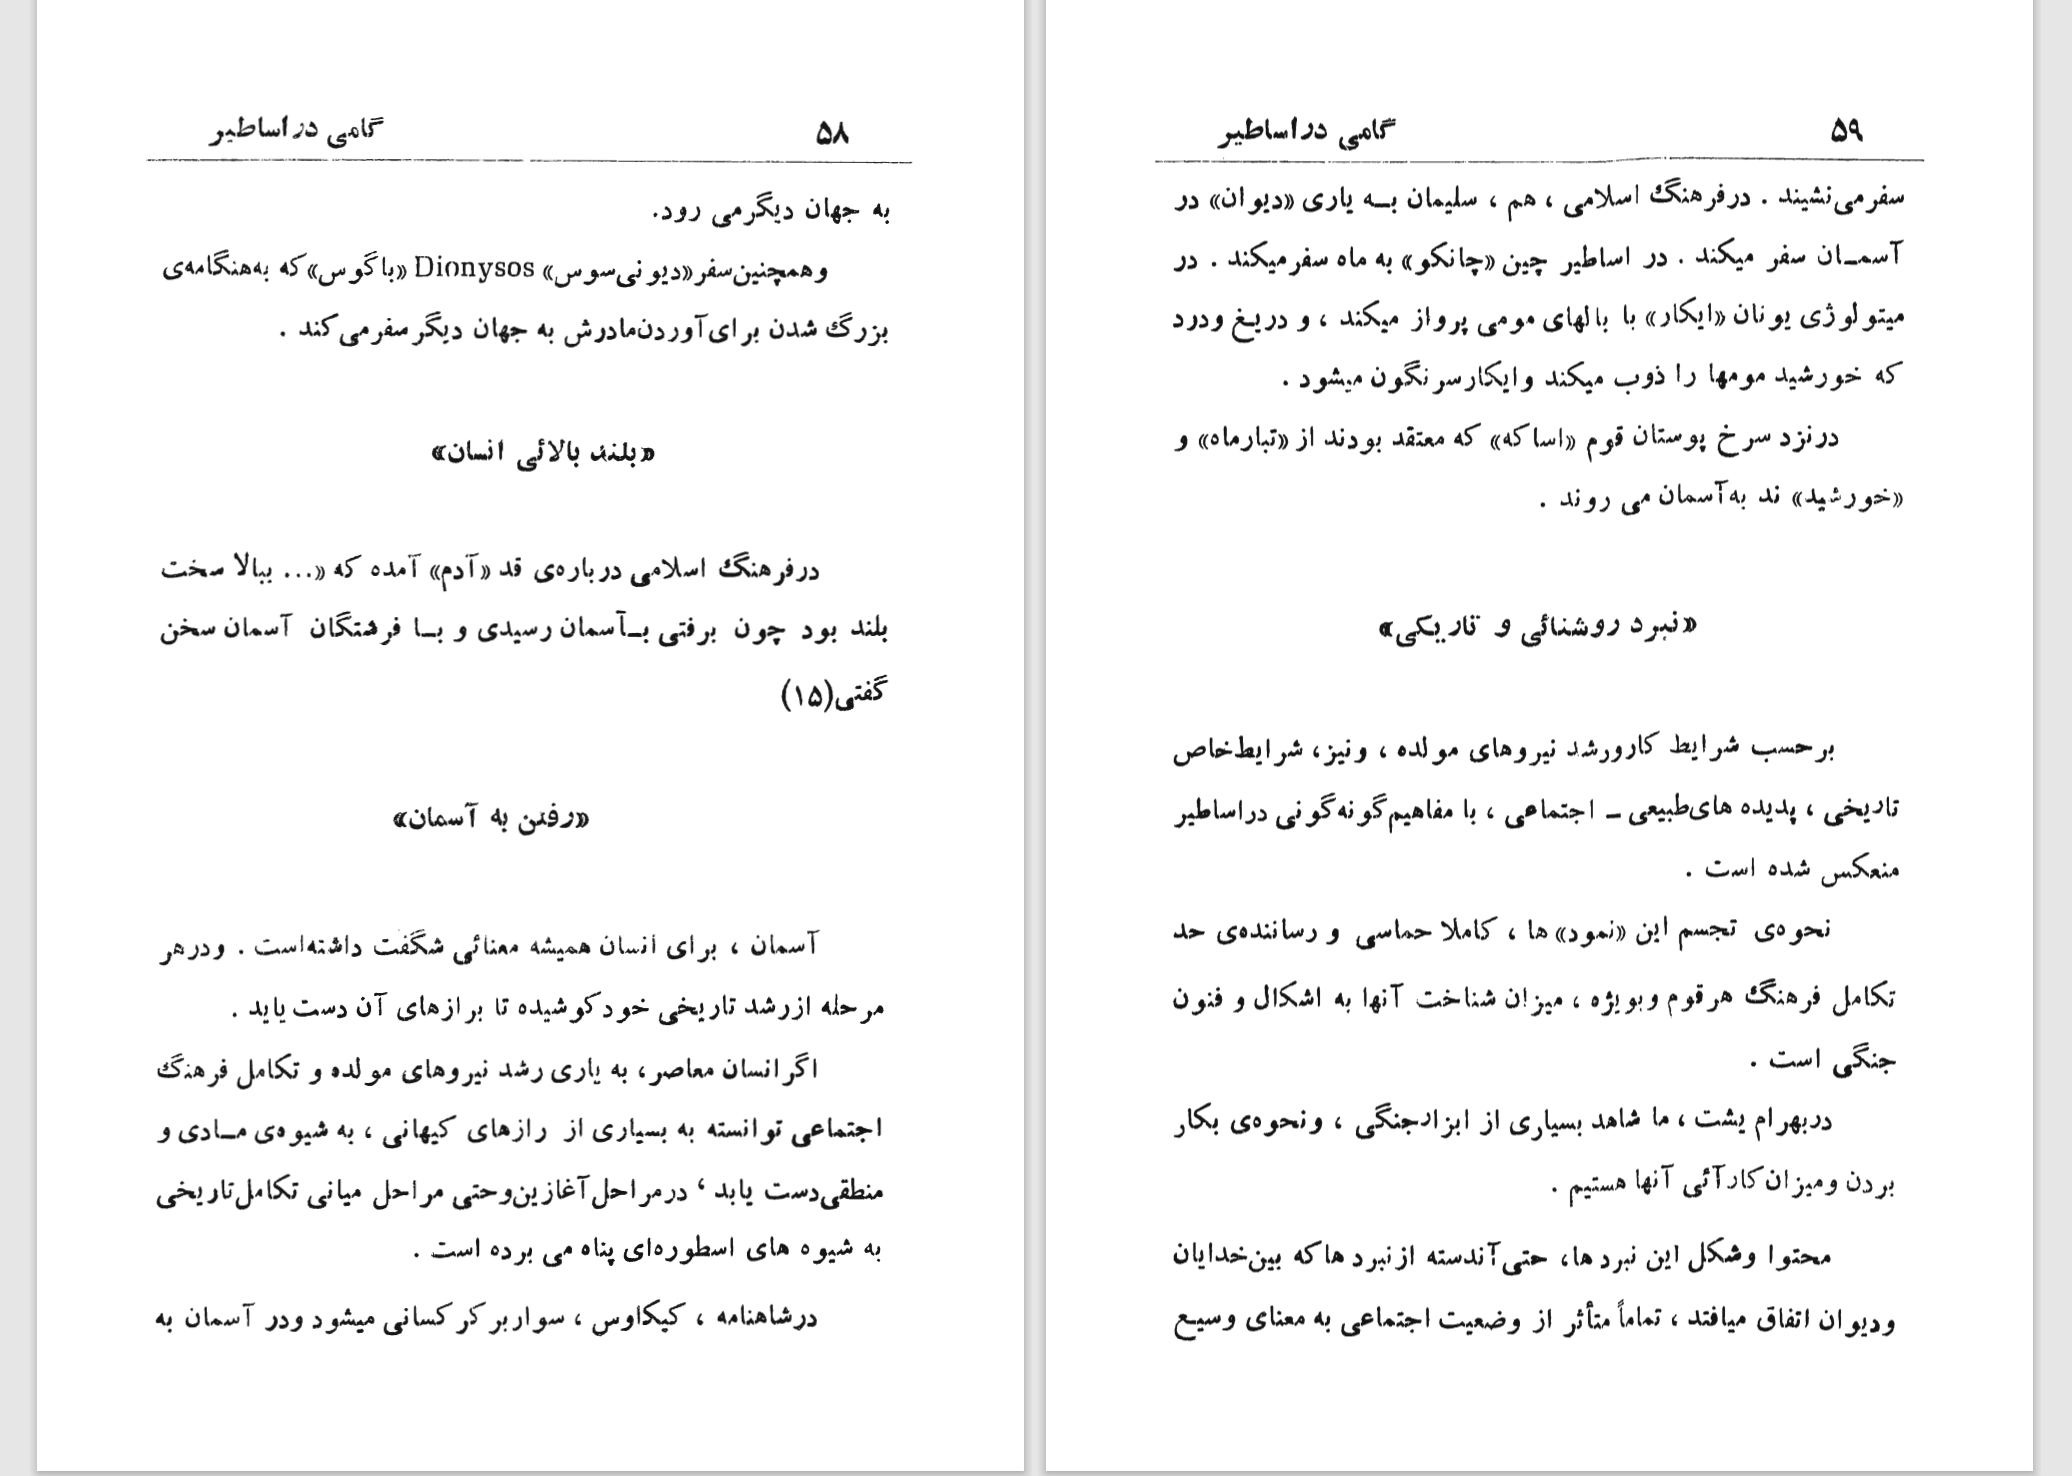 ۵۸ گامی در اساطیر
به جهان دیگر می رود.
و همچنین سفر «دیونی سوس» Dionysos «باگوس» که به هنگامه‌ی
بزرگ شدن برای آوردن مادرش به جهان دیگر سفر می کند .
«بلند بالائی انسان»
در فرهنگ اسلامی درباره‌ی قد «آدم» آمده که «... ببالا سخت
بلند بود چون برفتی بـآسمان رسیدی و بـا فرشتگان آسمان سخن
گفتی (۱۵)
«رفتن به آسمان»
آسمان ، برای انسان همیشه معنائی شگفت داشته است . و در هر
مرحله از رشد تاریخی خود کوشیده تا بر ازهای آن دست یابد .
اگر انسان معاصر، به یاری رشد نیروهای مولده و تکامل فرهنگ
اجتماعی توانسته به بسیاری از رازهای کیهانی ، به شیوه‌ی مـادی و
منطقی دست یابد ، در مراحل آغازین و حتی مراحل میانی تکامل تاریخی
به شیوه های اسطوره‌ای پناه می برده است .
در شاهنامه ، کیکاوس ، سوار بر کرکسانی میشود و در آسمان به
۵۹ گامی در اساطیر
سفر می نشیند . در فرهنگ اسلامی ، هم ، سلیمان بـه یاری «دیوان» در
آسمـان سفر میکند . در اساطیر چین «چانکو» به ماه سفر میکند . در
میتولوژی یونان «ایکار» با بالهای مومی پرواز میکند ، و دریغ و درد
که خورشید مومها را ذوب میکند و ایکار سرنگون میشود .
در نزد سرخ پوستان قوم «اساکه» که معتقد بودند از «تبار ماه» و
«خورشید» ند به آسمان می روند .
«نبرد روشنائی و تاریکی»
بر حسب شرایط کار و رشد نیروهای مولده ، و نیز، شرایط خاص
تاریخی ، پدیده های طبیعی ـ اجتماعی ، با مفاهیم گونه گونی در اساطیر
منعکس شده است .
نحوه‌ی تجسم این «نمود» ها ، کاملا حماسی و رساننده‌ی حد
تکامل فرهنگ هر قوم و بویژه ، میزان شناخت آنها به اشکال و فنون
جنگی است .
در بهرام یشت ، ما شاهد بسیاری از ابزار جنگی ، و نحوه‌ی بکار
بردن و میزان کارآئی آنها هستیم .
محتوا و شکل این نبرد ها، حتی آندسته از نبرد ها که بین خدایان
و دیوان اتفاق میافتد ، تماماً متأثر از وضعیت اجتماعی به معنای وسیع